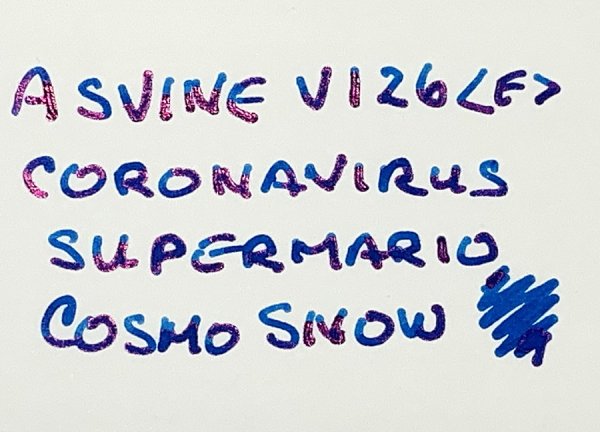 ASVINE V126<F>
CORONAVIRUS
SUPERMARIO
COSMO SNOW